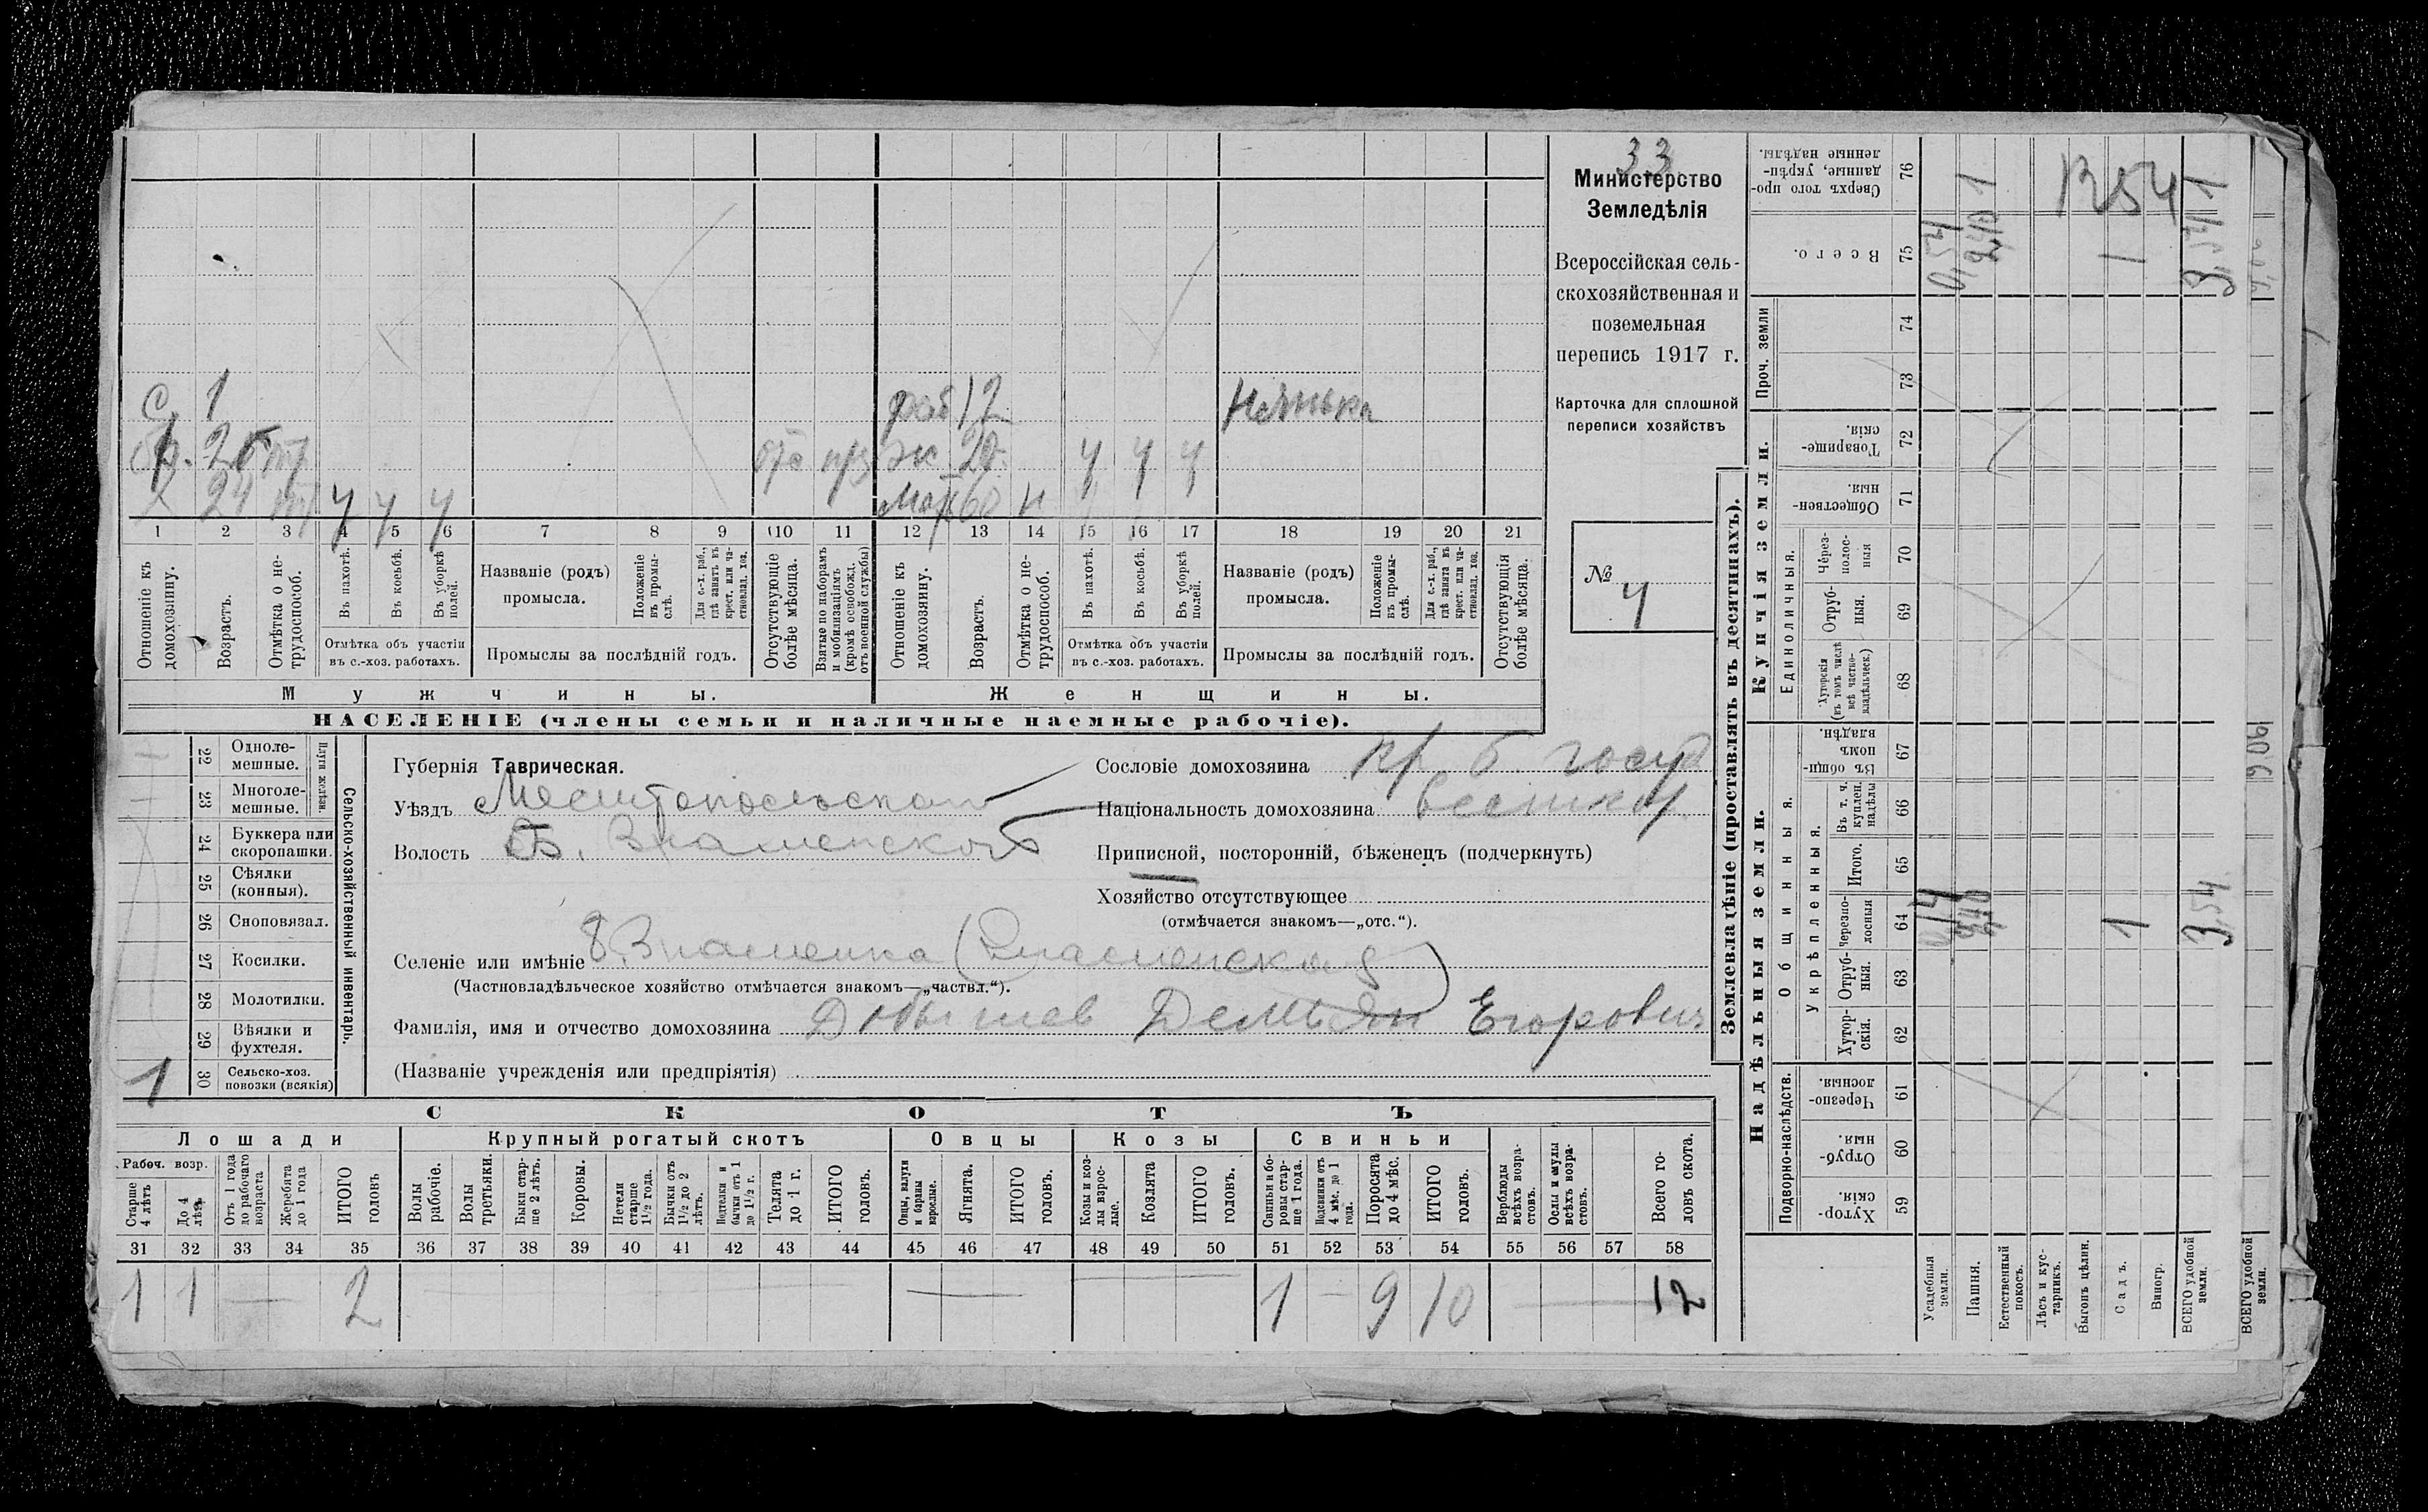 33
Министерство
Земледѣлія
Всероссійская сель-
скохозяйственная и
поземельная
перепись 1917 г.
Карточка для сплошной
переписи хозяйствъ
№ 4
С. 1
раб 12 Нянька
бр. 26
отс
эк 20
у у у
Х 24
у у у
мат 60 н
1 2 3 4 5 6 7 8 9 10 11 12 13 14 15 16 17 18 19 20 21
Отношеніе къ домохозяину.
Возрастъ.
Отмѣтка о не-трудоспособ.
Въ пахотѣ.
Въ косьбѣ.
Въ уборкѣ полей.
Отмѣтка объ участіи
въ с.-хоз. работахъ.
Названіе (родъ)
промысла.
Положеніе въ промы-слѣ.
Для с.-х. раб., гдѣ занятъ въ крест. или ча-стновлад. хоз.
Промыслы за послѣдній годъ.
Отсутствующіе болѣе мѣсяца.
Взятые по наборамъ и мобилизаціямъ (кромѣ освобожд. отъ военной службы)
Отношеніе къ домохозяину.
Возрастъ.
Отмѣтка о не-трудоспособ.
Въ пахотѣ.
Въ косьбѣ.
Въ уборкѣ полей.
Отмѣтка объ участіи
въ с.-хоз. работахъ.
Названіе (родъ)
промысла.
Положеніе въ промы-слѣ.
Для с.-х. раб., гдѣ занята въ крест. или ча-стновлад. хоз.
Промыслы за послѣдній годъ.
Отсутствующія болѣе мѣсяца.
Мужчины.
Женщины.
НАСЕЛЕНІЕ (члены семьи и наличные наемные рабочіе).
22 Одноле-мешные.
23 Многоле-мешные.
Плуги желѣзн.
24 Буккера или скоропашки.
25 Сѣялки (конныя).
26 Сноповязал.
27 Косилки.
28 Молотилки.
29 Вѣялки и фухтеля.
1 30 Сельско-хоз. повозки (всякія)
Сельско-хозяйственный инвентарь.
Губернія Таврическая.
Уѣздъ Мелитопольскаго
Волость Б. Знаменской
Селеніе или имѣніе Б. Знаменка (Знаменская)
(Частновладѣльческое хозяйство отмѣчается знакомъ—„частвл.“).
Фамилія, имя и отчество домохозяина Демьян Егорович
(Названіе учрежденія или предпріятія)
Сословіе домохозяина кр б. госуд
Національность домохозяина
Приписной, посторонній, бѣженецъ (подчеркнуть)
Хозяйство отсутствующее
(отмѣчается знакомъ—„отс.“).
СКОТЪ
Лошади
Крупный рогатый скотъ
Овцы
Козы
Свиньи
Рабоч. возр.
Старше 4 лѣтъ
До 4 лѣтъ
Отъ 1 года до рабочаго возраста
Жеребята до 1 года
ИТОГО головъ
Волы рабочіе.
Волы третьяки.
Быки стар-ше 2 лѣтъ.
Коровы.
Нетели старше 1½ года.
Бычки отъ 1½ до 2 лѣтъ.
Подтелки и бычки отъ 1 до 1½ г.
Телята до 1 г.
ИТОГО головъ.
Овцы, валухи и бараны взрослые.
Ягнята.
ИТОГО головъ.
Козы и коз-лы взрос-лые.
Козлята
ИТОГО головъ.
Свиньи и бо-ровы стар-ше 1 года.
Подсвинки отъ 4 мѣс. до 1 года.
Поросята до 4 мѣс.
ИТОГО головъ.
Верблюды всѣхъ возра-стовъ.
Ослы и мулы всѣхъ возра-стовъ.
Всего го-ловъ скота.
31 32 33 34 35 36 37 38 39 40 41 42 43 44 45 46 47 48 49 50 51 52 53 54 55 56 57 58
1 1 — 2 — — — 1 – 9 10 — 12
Землевладѣніе (проставлять въ десятинахъ).
Купчія земли.
Надѣльныя земли.
Проч. земли
Единоличныя.
Общинныя.
Укрѣпленныя.
Подворно-наслѣдств.
Сверхъ того про-данные, укрѣп-ленные надѣлы. 76
Всего. 75
74
73
Товарище-скія. 72
Обществен-ныя. 71
Через-полос-ныя 70
Отруб-ныя. 69
Хуторскія (въ томъ числѣ всѣ частно-владѣльческ.) 68
Въ общин-номъ владѣн. 67
Въ т. ч. куплен. надѣлы 66
Итого. 65
Черезпо-лосныя 64
Отруб-ныя. 63
Хутор-скія. 62
Черезпо-лосныя. 61
Отруб-ныя. 60
Хутор-скія. 59
Усадебныя земли.
Пашня.
Естественный покосъ.
Лѣсъ и кус-тарникъ.
Выгонъ цѣлин.
Садъ.
Виногр.
ВСЕГО удобной земли.
ВСЕГО удобной земли.
0,54
2,40
1
1
1254
1
3,54
906